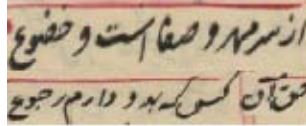 از سر مهر و صفا است و خضوع
حق آن کس که بدو دارم رجوع